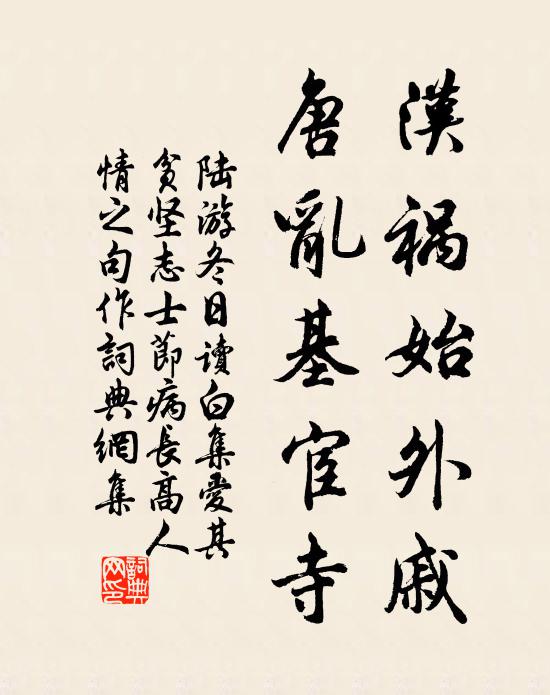 漢禍始外戚
唐亂基宦寺
陸游冬日讀白集愛其
貧堅志士節病長高人
情之句作詞典網集
詞典网印